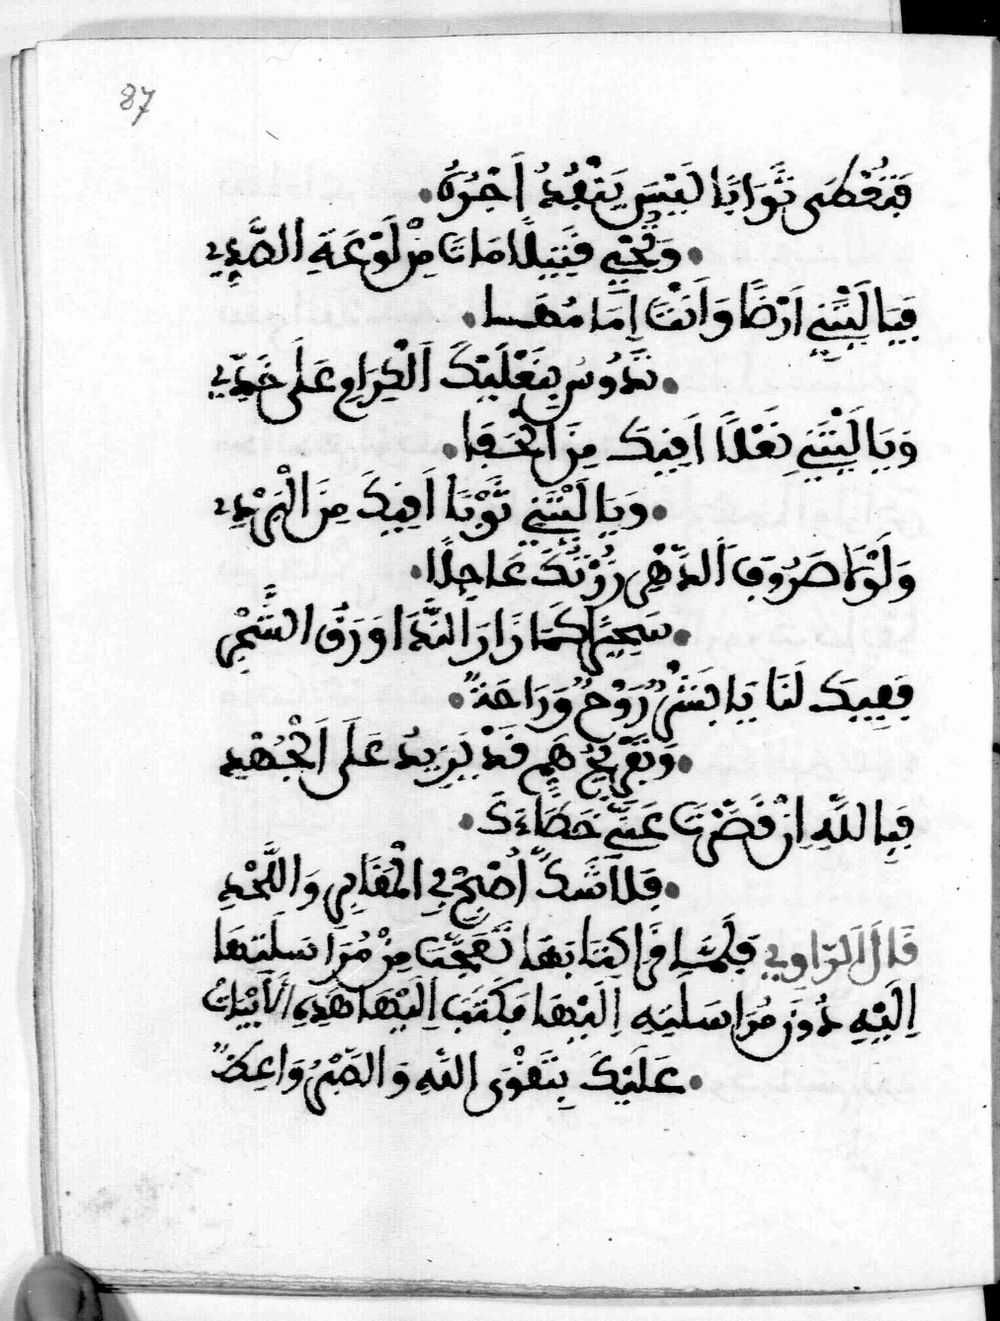 87
فَتُعْطَى ثَوَابًا لَيْسَ يَنْفَدُ أَجْرُهُ
وَتُحْيِي قَتِيلًا مَاتَ مِنْ لَوْعَةِ الصَّدِّ
فَيَا لَيْتَنِي أَرْضًا وَأَنْتَ إِمَامُهَا
تَدُوسُ بِنَعْلَيْكَ الْكِرَامِ عَلَى خَدِّي
وَيَا لَيْتَنِي نَعْلًا أَقِيكَ مِنَ الْحَفَا
وَيَا لَيْتَنِي ثَوْبًا أَقِيكَ مِنَ الْبَرْدِ
وَلَوْلَا صُرُوفُ الدَّهْرِ زُرْتُكَ عَاجِلًا
سَحِيرًا كَمَا زَارَ النَّدَا وَرَقَ الشَّجَرِ
فَفِيكَ لَنَا يَا بِشْرُ رَوْحٌ وَرَاحَةٌ
وَتَفْرِيجُ هَمٍّ قَدْ يَزِيدُ عَلَى الْجُهْدِ
فَبِاللَّهِ إِنْ قَصَّرْتَ عَنِّي خَطَاءَكَ
فَلَا شَكَّ أُصْبِحْ فِي الْمَقَابِرِ وَاللَّحْدِ
قَالَ الرَّاوِي فَلَمَّا قَرَا كِتَابَهَا تَعَجَّبَ مِنْ مُرَاسَلَتِهَا
إِلَيْهِ دُونَ مُرَاسَلَتِهِ إِلَيْهَا فَكَتَبَ إِلَيْهَا هَذِهِ الْأَبْيَاتُ
عَلَيْكَ بِتَقْوَى اللَّهِ وَالصَّبْرُ وَاعِظٌ